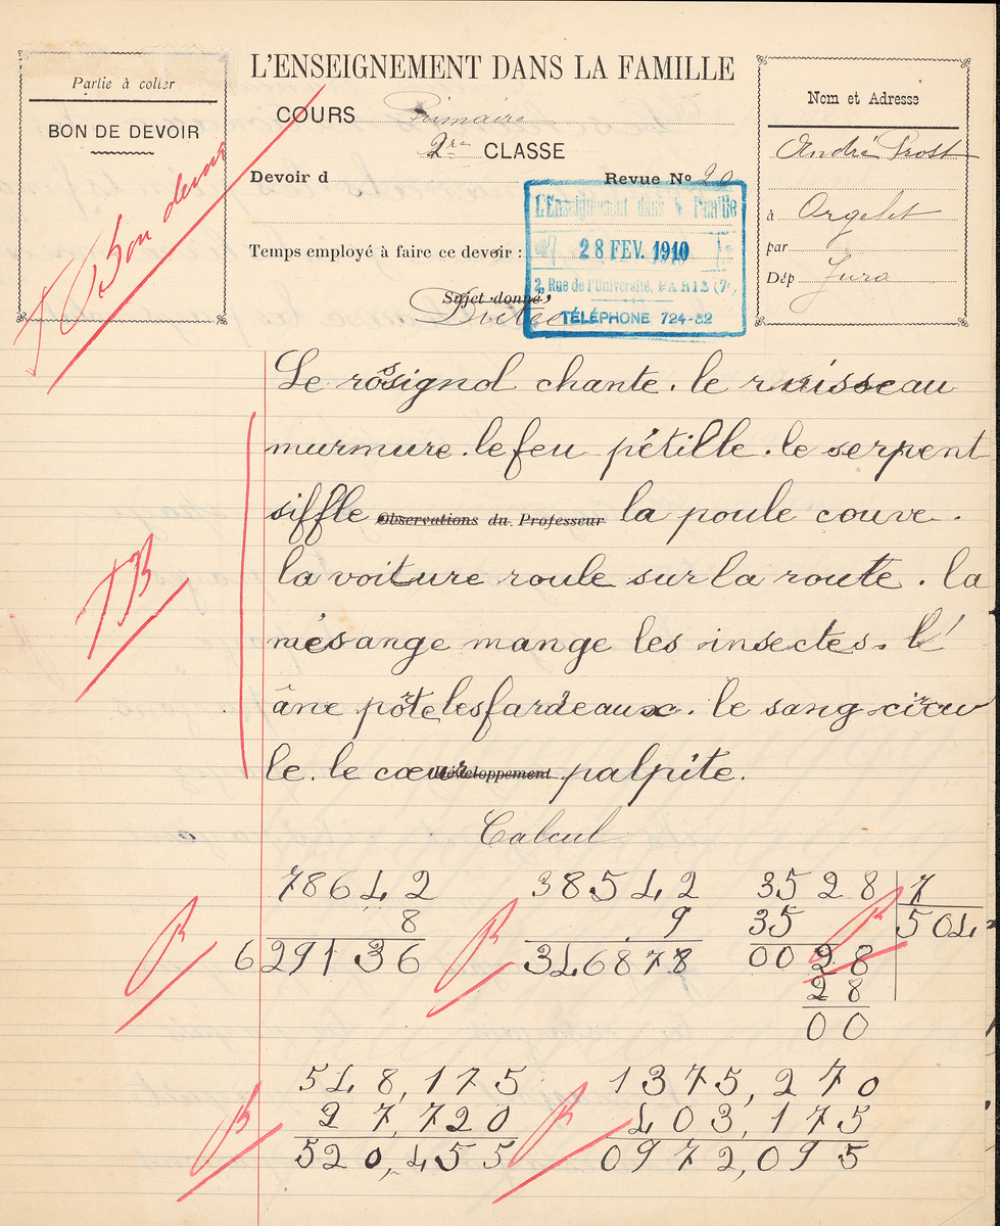 Partie à coller
BON DE DEVOIR
T. Bon devoir
L'ENSEIGNEMENT DANS LA FAMILLE
COURS Primaire
2re CLASSE
Devoir d
Revue No 20
Temps employé à faire ce devoir :
Sujet donné
Dictée
L'Enseignement dans la Famille
28 FEV. 1910
2, Rue de l'Université, PARIS (7e)
TÉLÉPHONE 724-82
Nom et Adresse
André Prost
à Orgelet
par
Dép Jura
Le rossignol chante. le ruisseau
murmure. le feu pétille. le serpent
siffle Observations du Professeur la poule couve.
la voiture roule sur la route. la
mésange mange les insectes. l'
âne porte les fardeaux. le sang circu
le. le cœur Développement palpite.
TB
Calcul
78642
8
629136
B
38542
9
346878
B
3528 7
35 504
0028
28
00
B
548,175
27,720
520,455
B
1375,270
403,175
0972,095
B